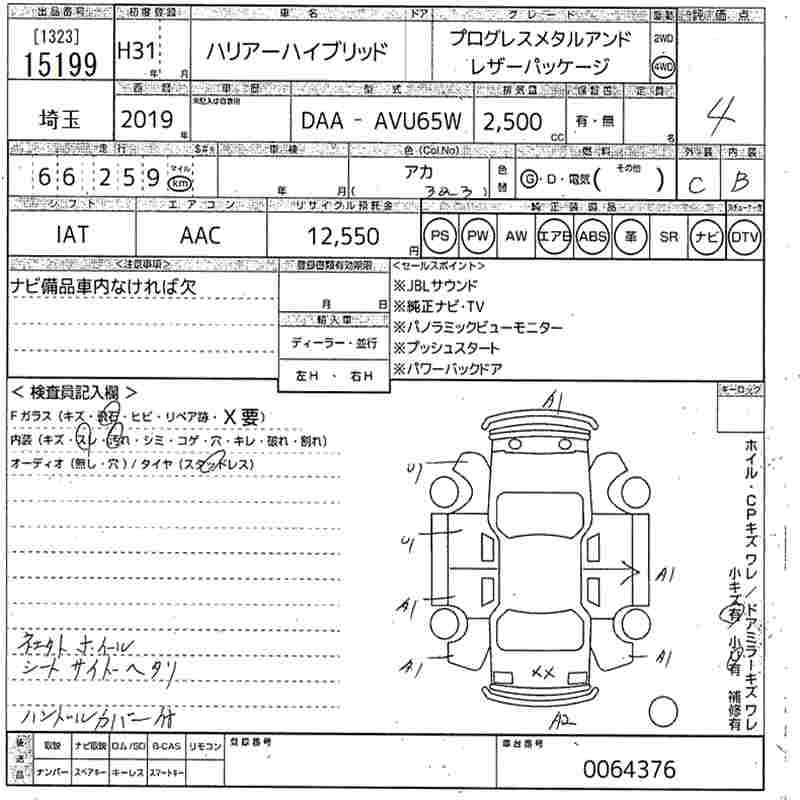 出品番号 初度登録 車名 ドア グレード 駆動 評価点
[1323]
15199
H31 年 月
ハリアーハイブリッド
プログレスメタルアンド
レザーパッケージ
2WD
4WD
4
埼玉
2019 年
車歴
未記入は自家用
型式
DAA - AVU65W
排気量
2,500 CC
有・無
定員
名
走行 車検 色(Col.No) 燃料 外装 内装
66,259 マイル km
年 月
アカ
(3R3)
色替
G・D・電気( その他 )
C B
シフト エアコン リサイクル預託金 純正装備品
IAT AAC 12,550 円
PS PW AW エアB ABS 革 SR ナビ DTV
<注意事項> 登録書類有効期限 <セールスポイント>
ナビ備品車内なければ欠
月 日
輸入車
ディーラー・並行
左H・右H
※JBLサウンド
※純正ナビ・TV
※パノラミックビューモニター
※プッシュスタート
※パワーバックドア
キーロック
< 検査員記入欄 >
Fガラス (キズ・飛石・ヒビ・リペア跡・X要)
内装 (キズ・スレ・汚れ・シミ・コゲ・穴・キレ・破れ・割れ)
オーディオ (無し・穴) / タイヤ (スタッドレス)
A1
U1
U1
A1
A1
A1
A1
XX
A2
ホイル・CPキズワレ/ドアミラーキズワレ
小キズ有 小凹有 補修有
シートサイドヘタリ
ハンドルカバー付
後送品
取説 ナビ取説 ロム/SD B-CAS リモコン
ナンバー スペアキー キーレス スマートキー
登録番号
車台番号
0064376